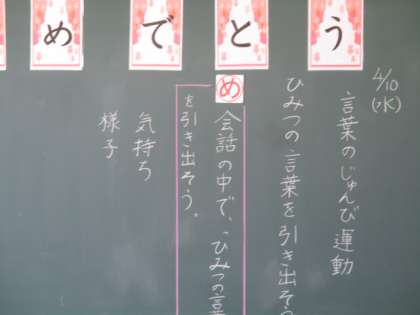 めでとう
4/10
(水)
言葉のじゅんび運動
ひみつの言葉を引き出そう
め
会話の中で、ひみつの言
を引き出そう。
気持ち
様子